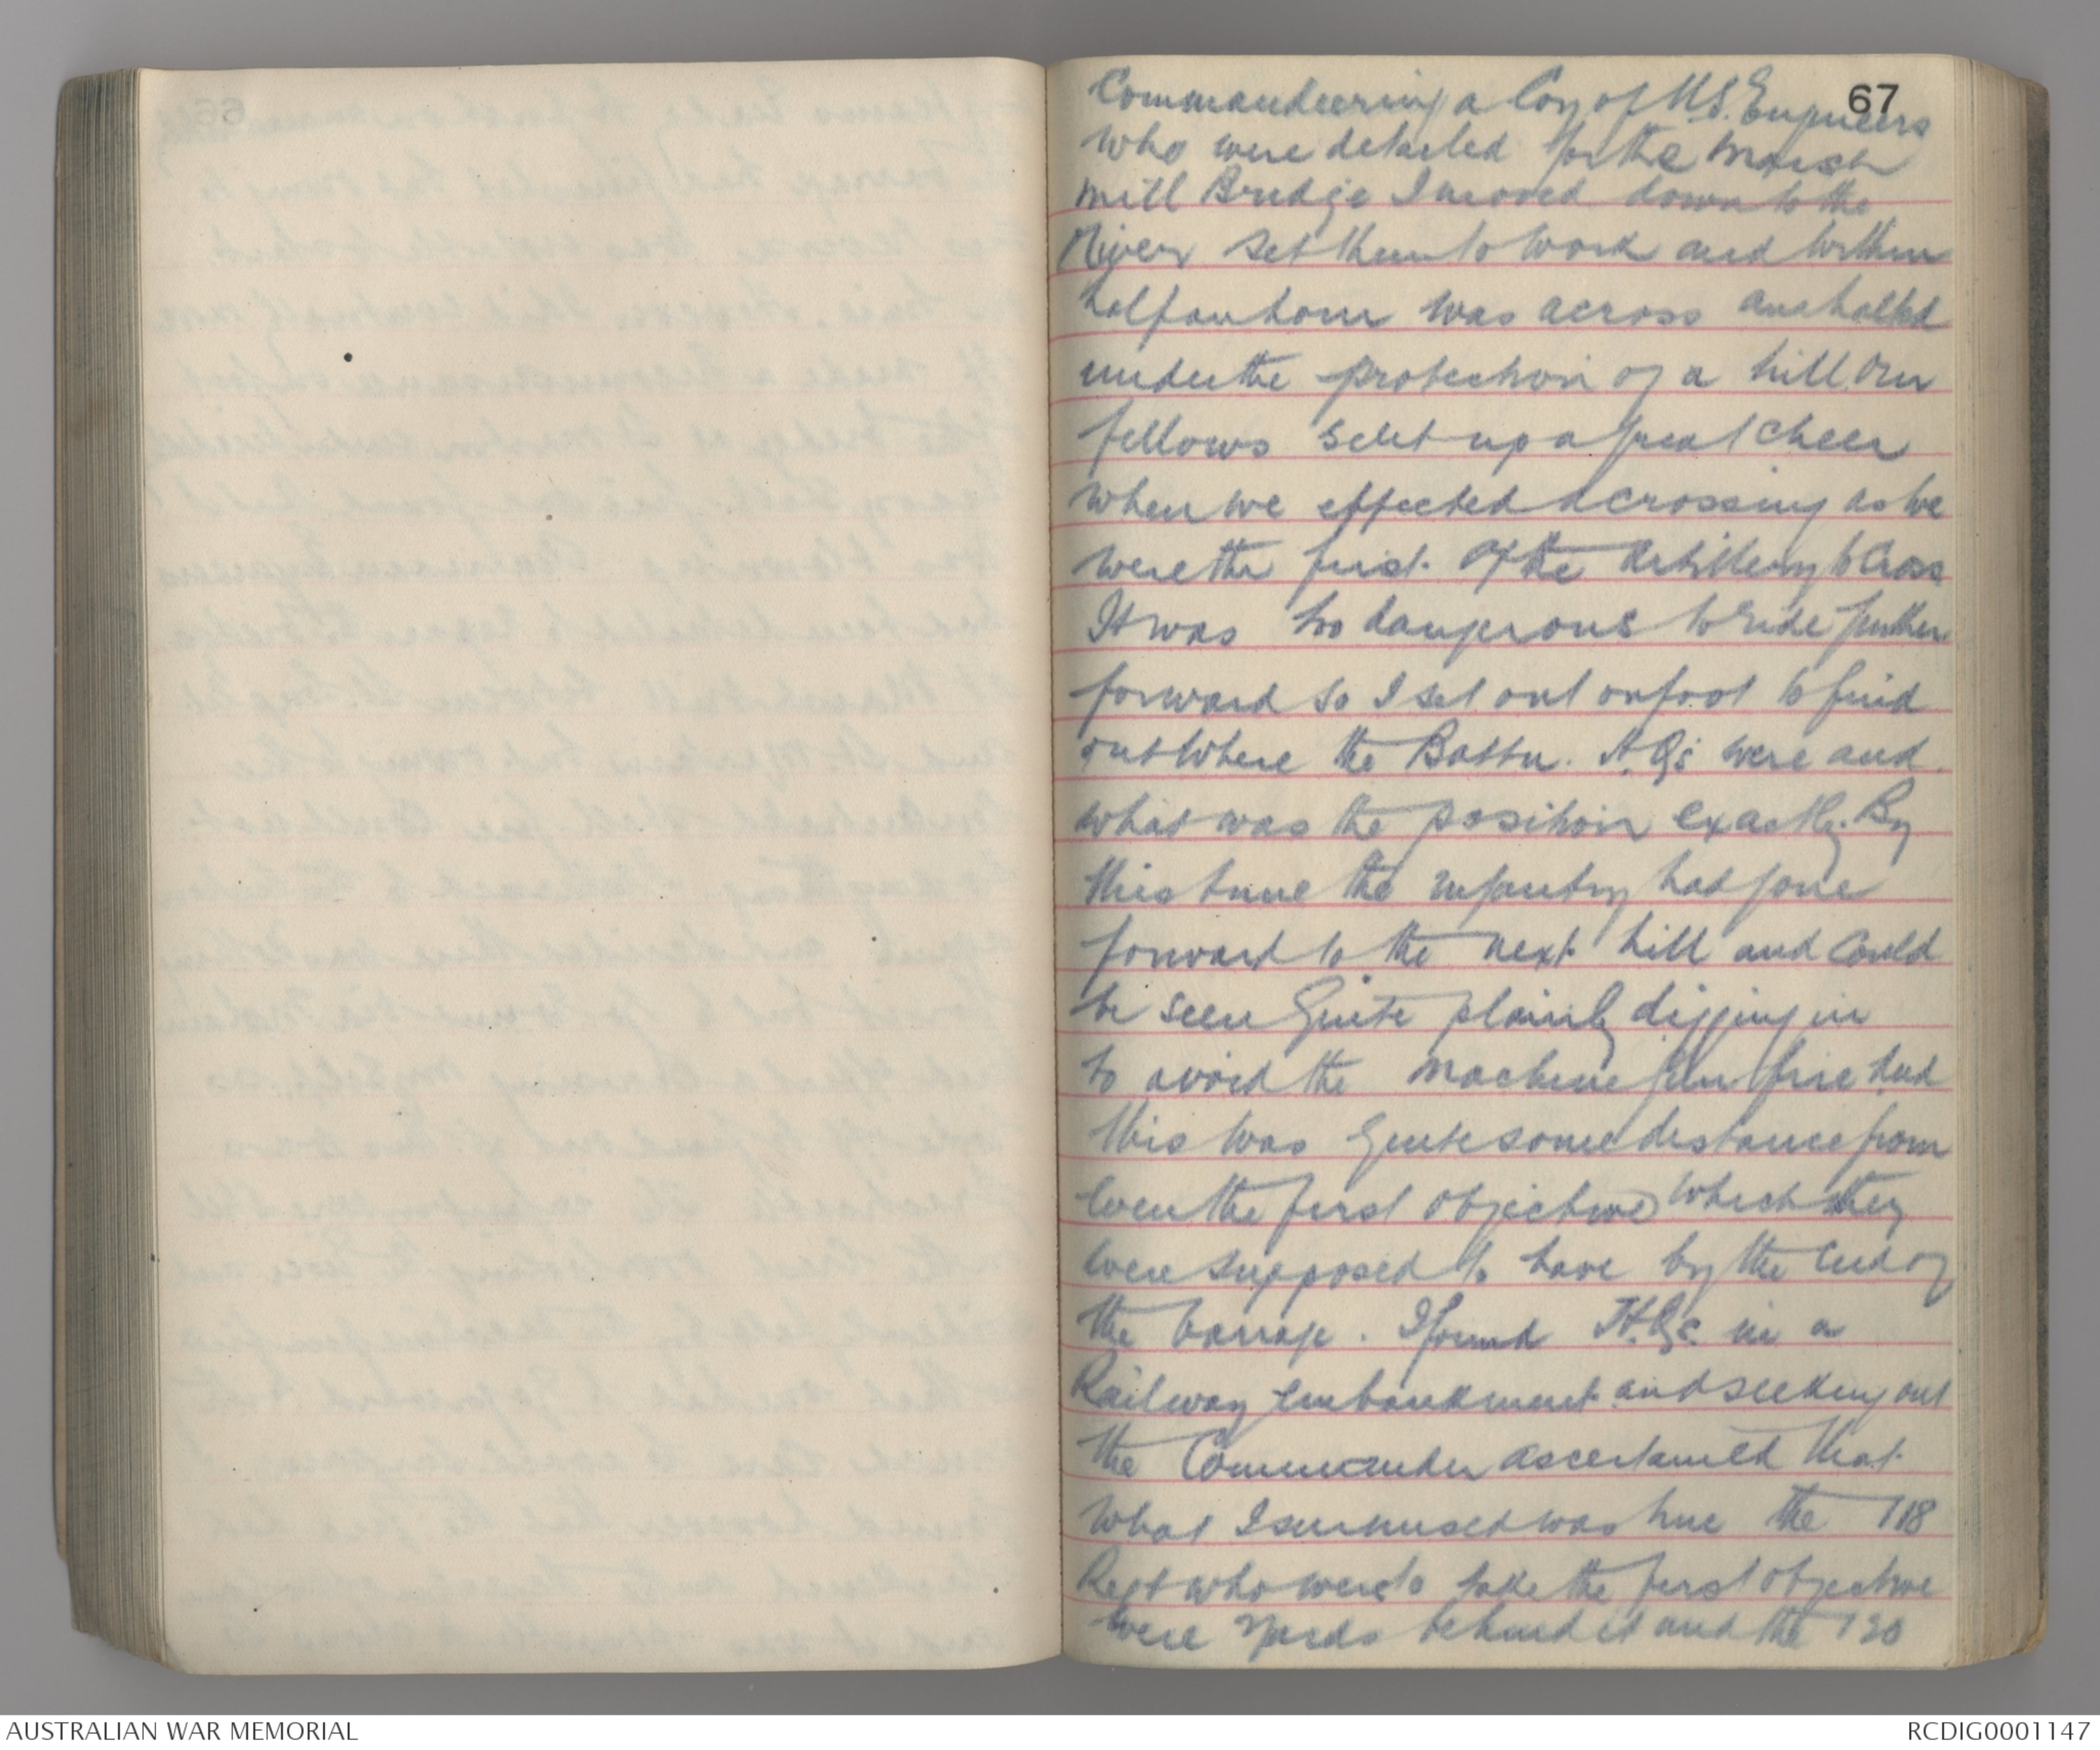 67
Commandeering a Coy of U.S. Engineers
who were detailed for the Marsh
Mill Bridge I moved down to the
River set them to work and within
half an hour was across and halted
under the protection of a hill. Our
fellows set up a great cheer
when we effected a crossing as we
were the first of the Artillery to cross
It was too dangerous to ride further
forward so I set out on foot to find
out where the Battn. H.Qs were and
what was the position exactly. By
this time the infantry had gone
forward to the next hill and could
be seen quite plainly digging in
to avoid the machine gun fire but
this was quite some distance from
even the first objective which they
were supposed to have by the end of
the barrage. I found H.Qs. in a
Railway embankment and seeking out
the Commander ascertained that
what I surmised was true the 118
Regt who were to take the first objective
were yards behind it and the 120
AUSTRALIAN WAR MEMORIAL
RCDIG0001147